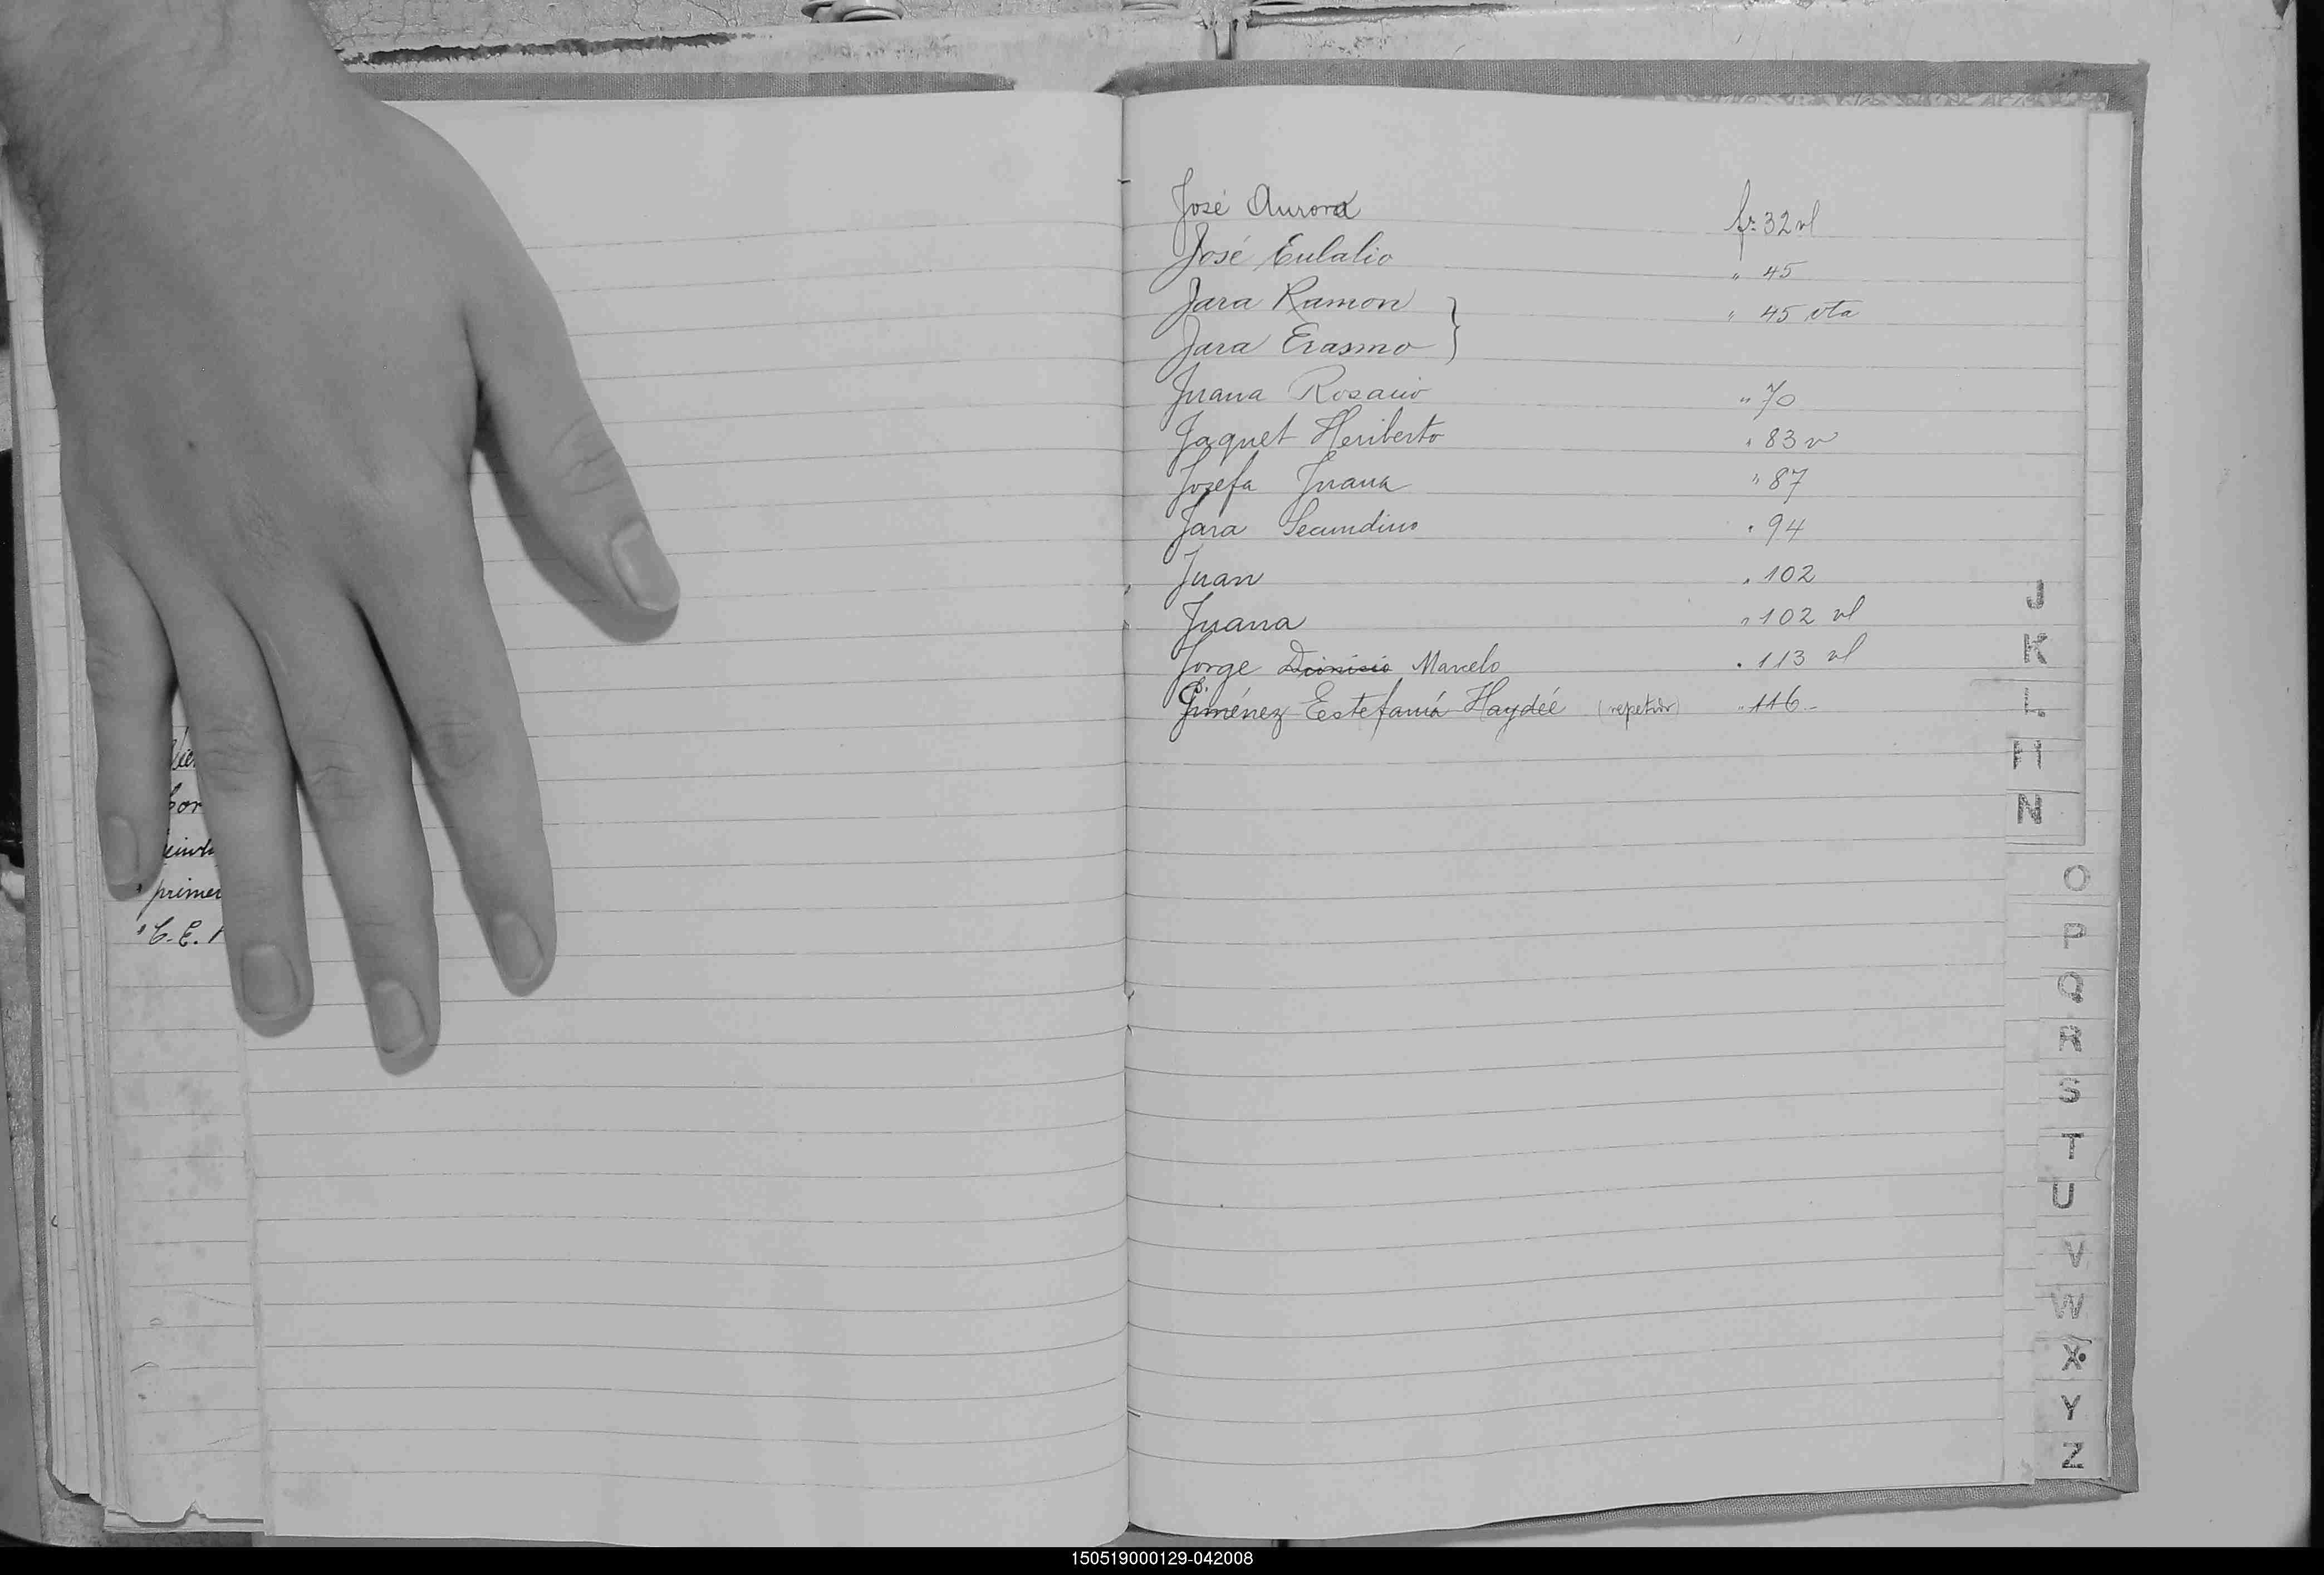 José Aurora fs. 32 vl
José Eulalio " 45
Jara Ramon } " 45 vta
Jara Erasmo
Juana Rosario " 70
Jaquet Heriberto " 83 v
Josefa Juana " 87
Jara Secundino " 94
Juan " 102
Juana " 102 vl
Jorge Dionisio Marcelo " 113 vl
Jiménez Estefanía Haydée (repetido) " 116-
primer
"C. E.
J
K
L
M
N
O
P
Q
R
S
T
U
V
W
X
Y
Z
150519000129-042008